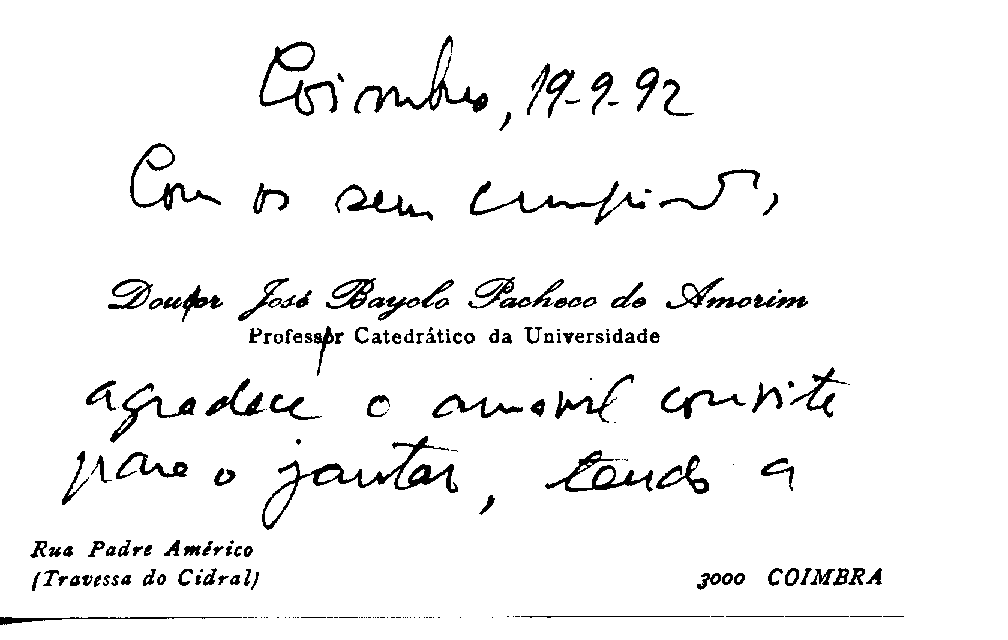 Coimbra, 19-9-92
Com os seus cumprimtos,
Doutor José Bayolo Pacheco de Amorim
Professor Catedrático da Universidade
agradece o amável convite
para o jantar, tendo a
Rua Padre Américo
(Travessa do Cidral)
3000 COIMBRA